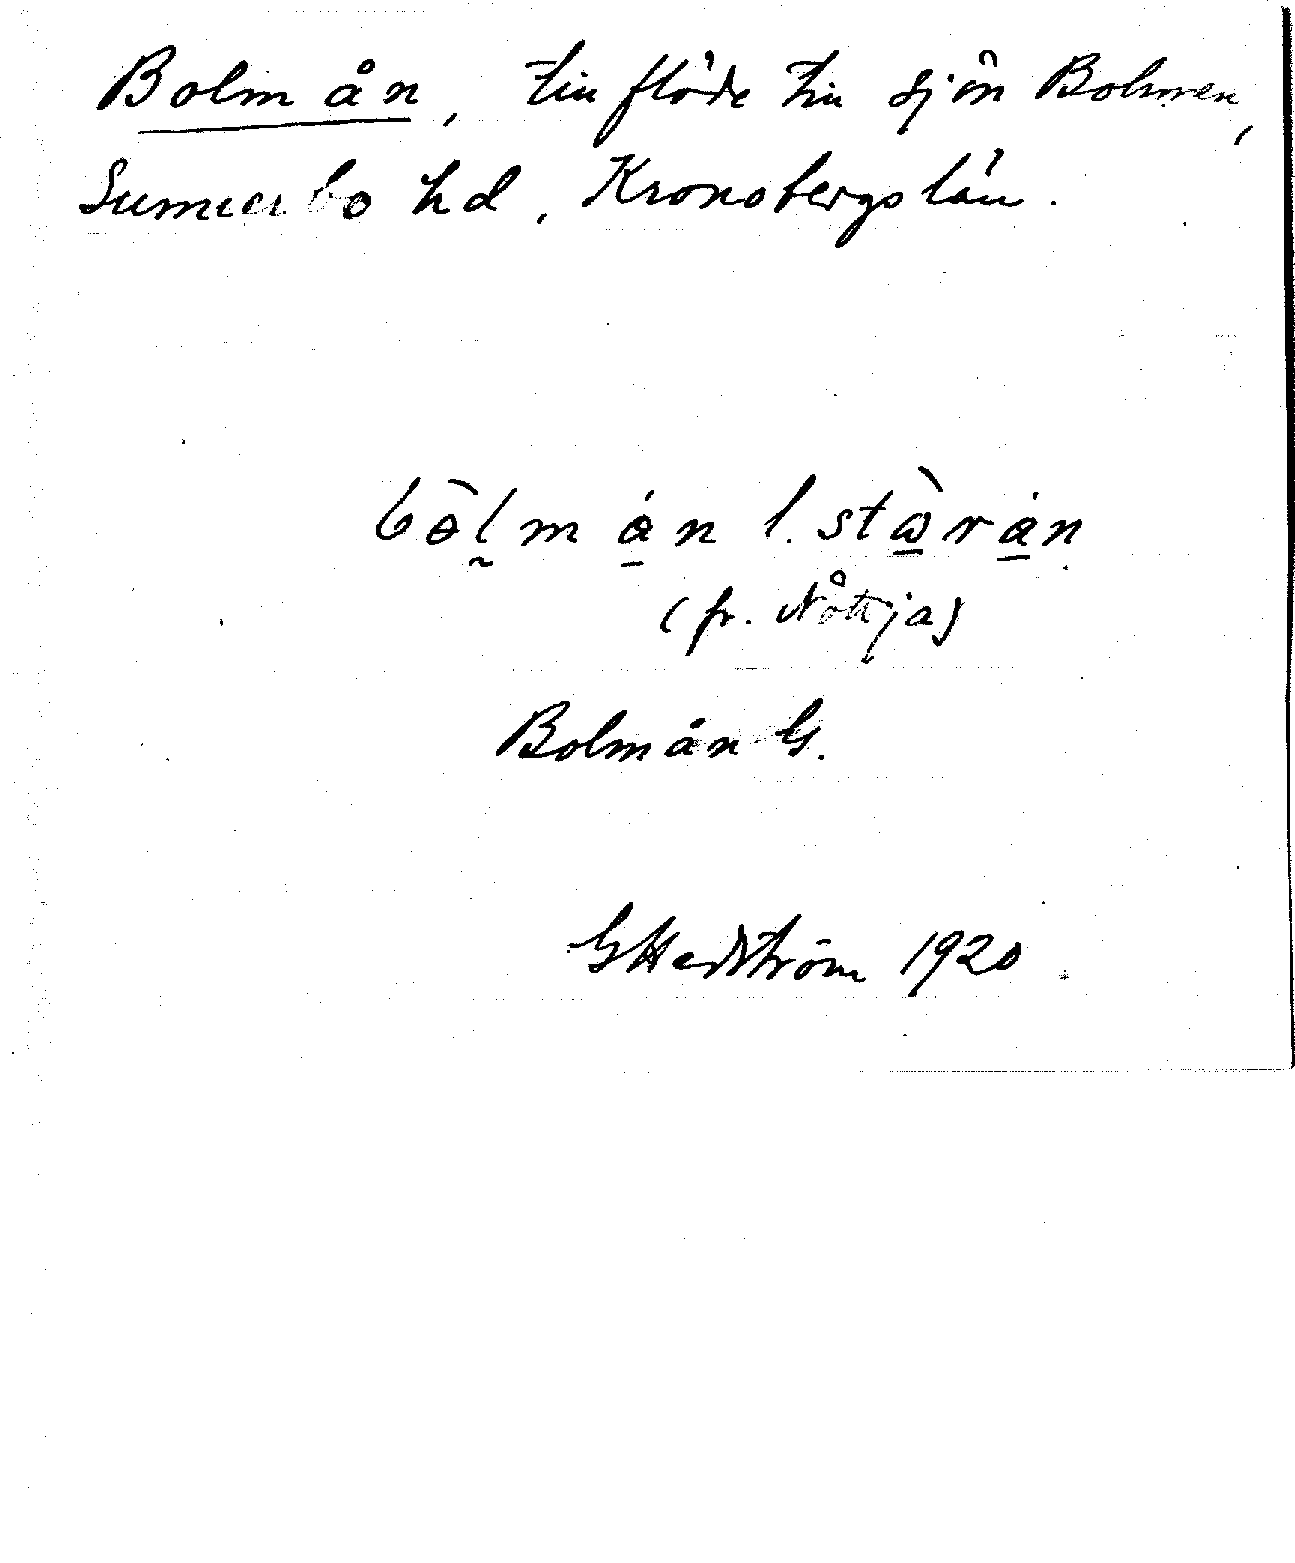 Bolmån, tillflöde till sjön Bolmen,
Sunnerbo hd, Kronobergs län.
bòlmån l. stòrån
(fr. Nöttja)
Bolmån G.
GHedström 1920.